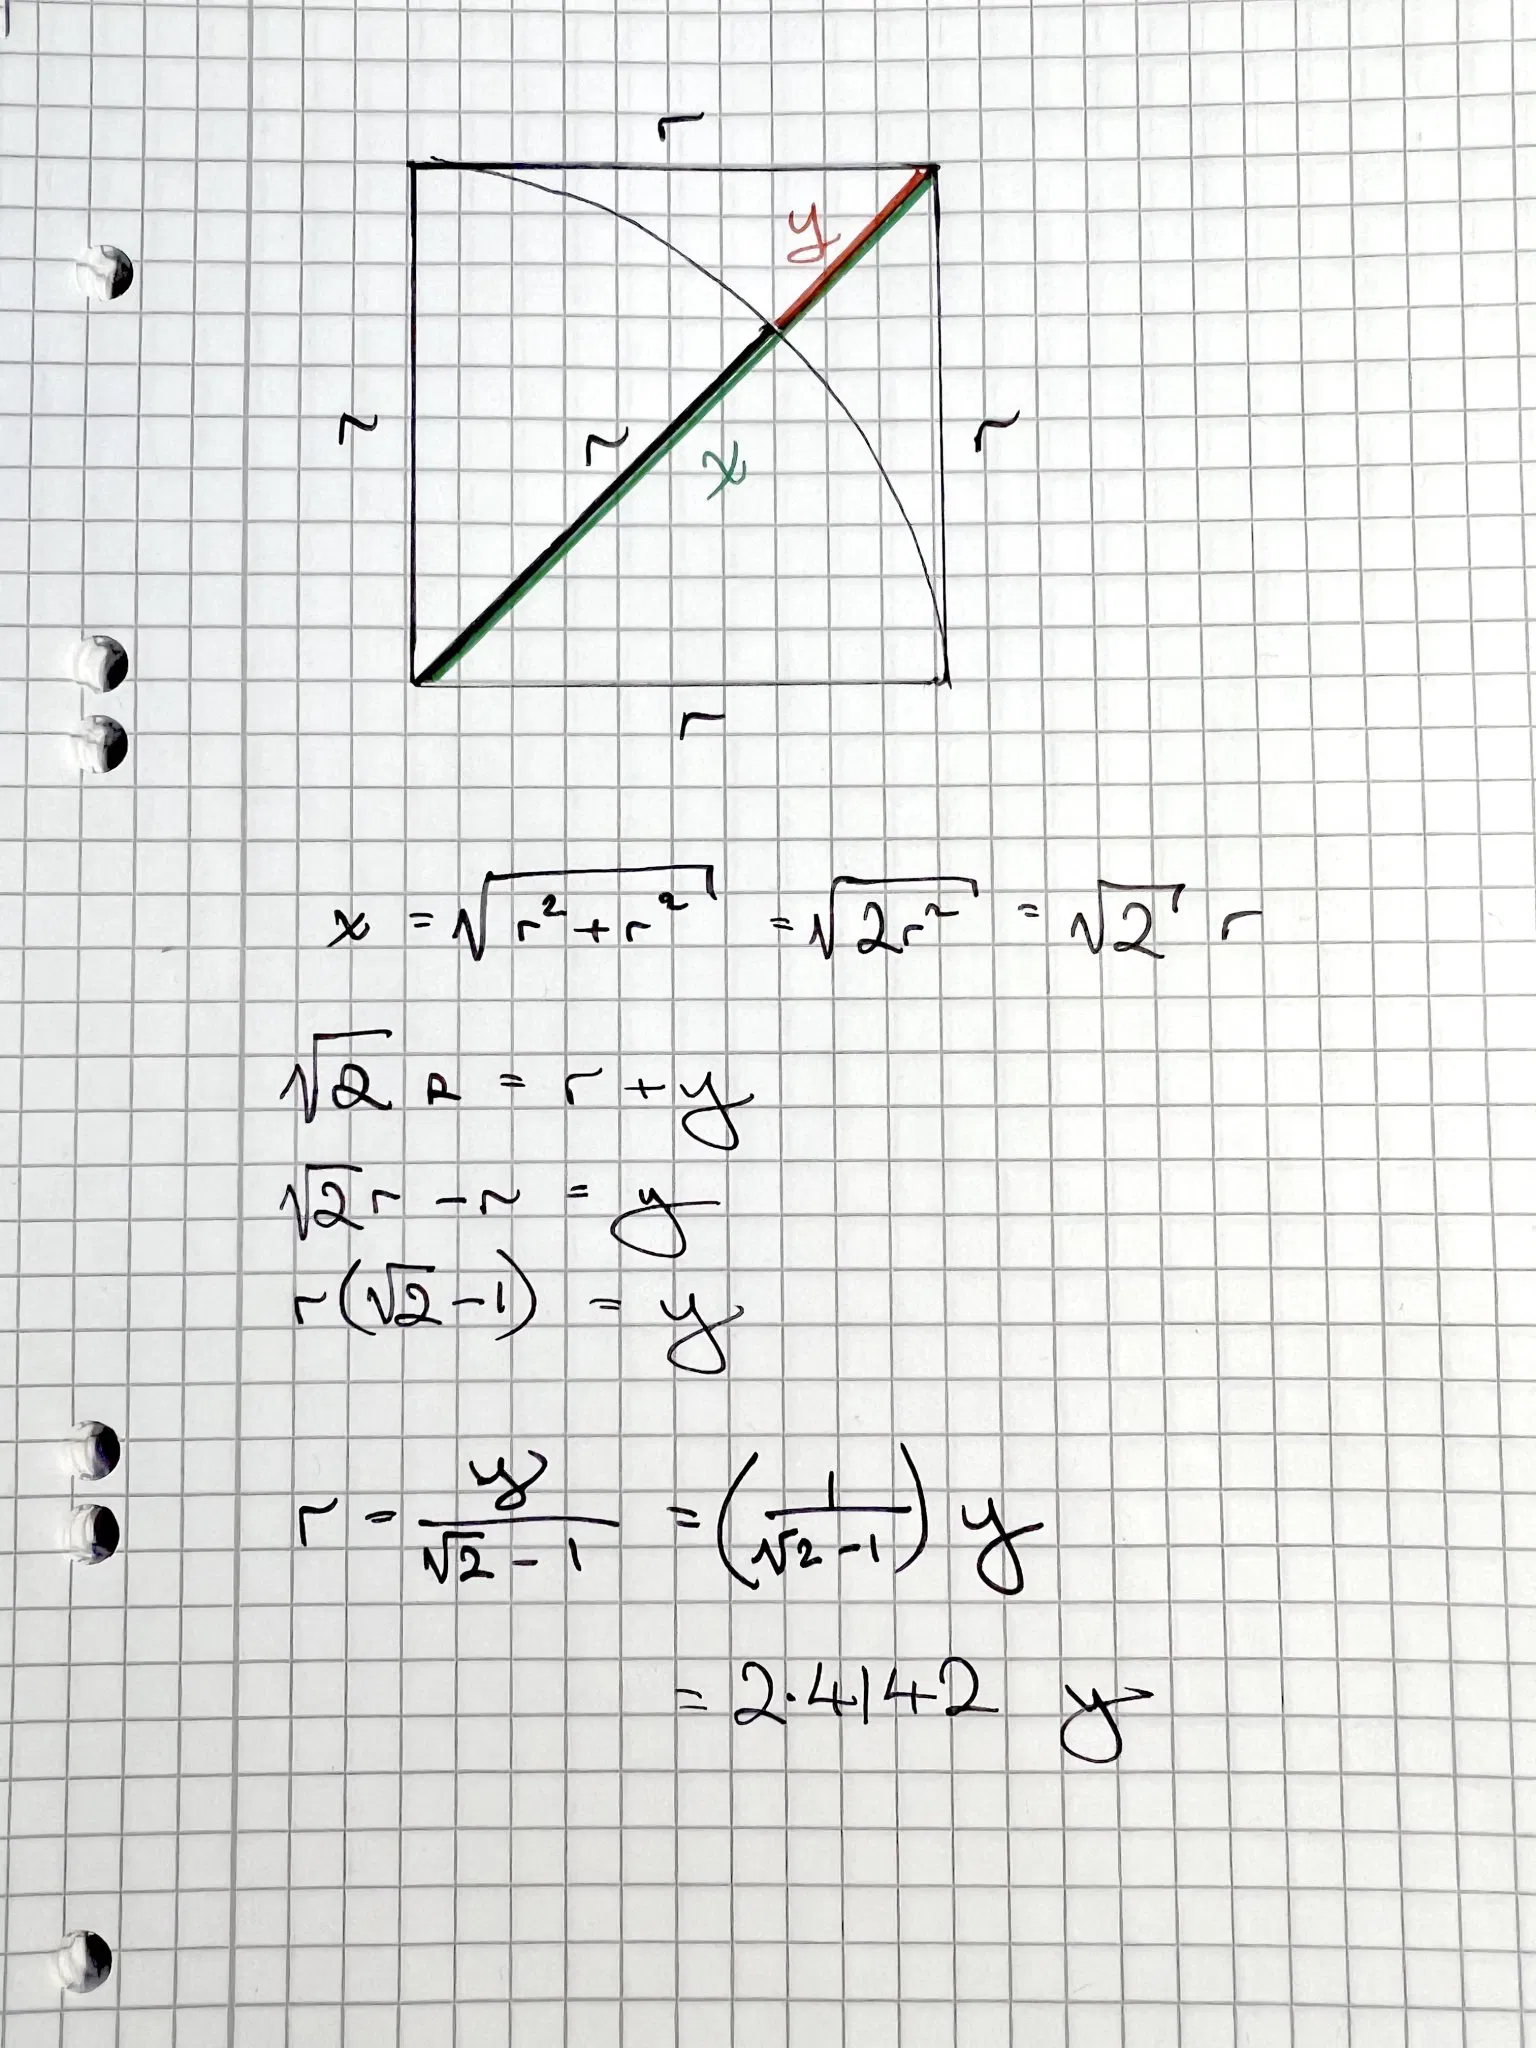 r
y
r
r
x
r
r
x = √(r² + r²) = √(2r²) = √2 r
√2 r = r + y
√2 r - r = y
r(√2 - 1) = y
r = y/(√2 - 1) = (1/(√2 - 1)) y
= 2.4142 y